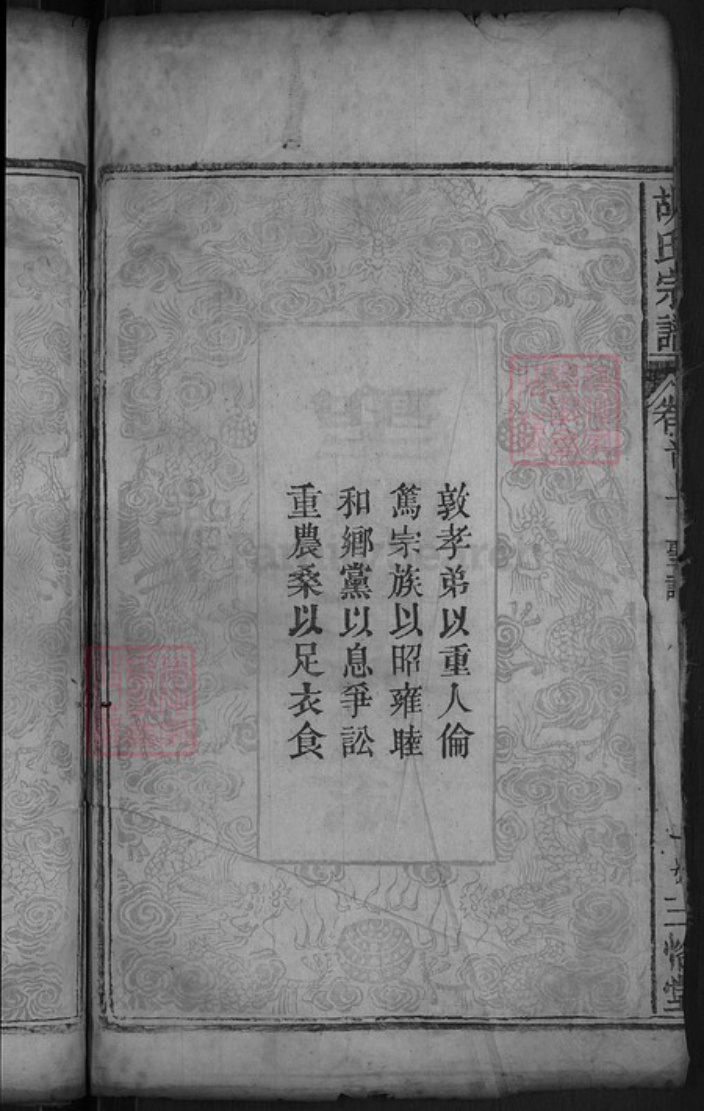 敦孝弟以重人倫
篤宗族以昭雍睦
和鄉黨以息爭訟
重農桑以足衣食
胡氏宗譜
卷首
聖諭